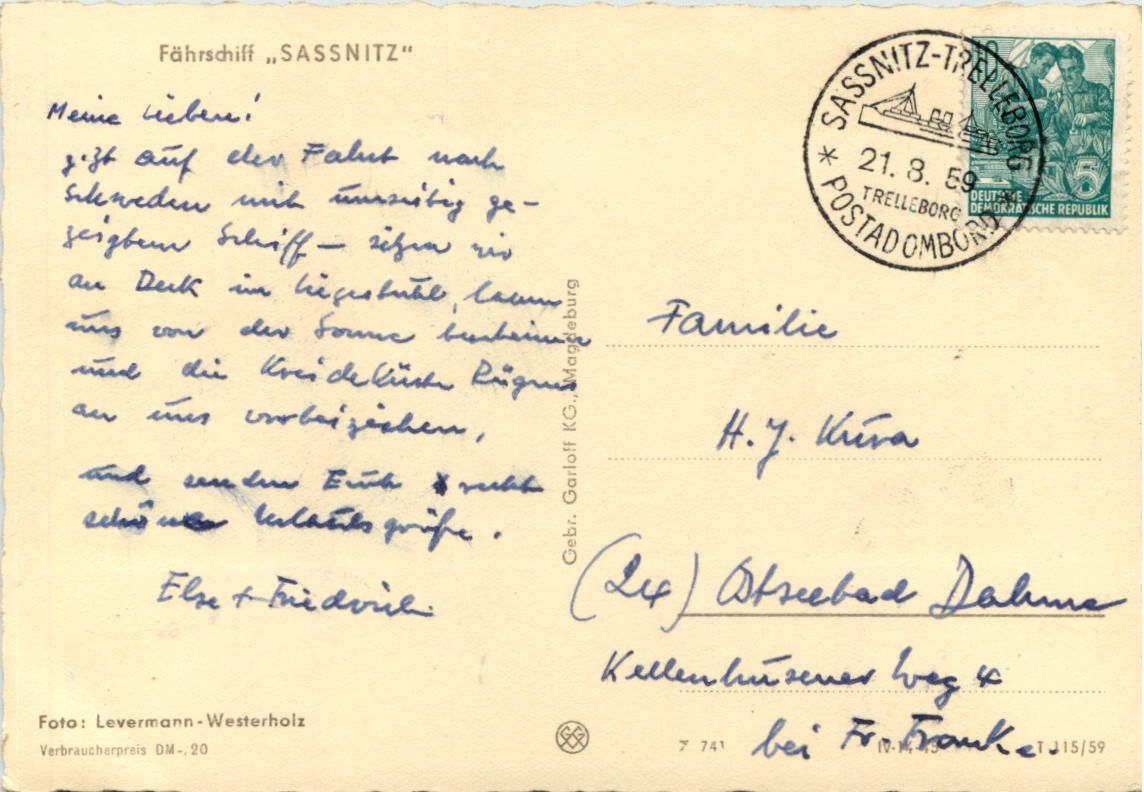 Fährschiff „SASSNITZ"
Meine Lieben!
jetzt auf der Fahrt nach
Schweden mit umseitig ge-
zeigtem Schiff – sitzen wir
an Deck im Liegestuhl, lassen
uns von der Sonne bescheinen
und die Kreideküste Rügens
an uns vorbeiziehen,
und senden Euch recht
schöne Urlaubsgrüße.
Else + Friedrich
Foto: Levermann-Westerholz
Verbraucherpreis DM -,20
Gebr. Garloff KG., Magdeburg
SASSNITZ-TRELLEBORG
21. 8. 59
TRELLEBORG
* POSTAD OMBORD *
10
5
DEUTSCHE
DEMOKRATISCHE REPUBLIK
Familie
H. J. Kruva
(24) Ostseebad Dahme
Kellenhusener Weg 4
bei Fr. Franke.
Z 741
T 115/59